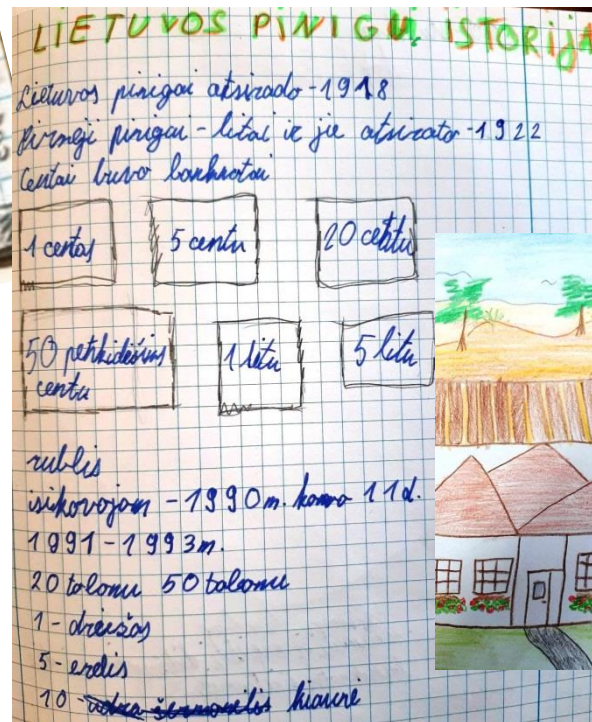 LIETUVOS PINIGŲ ISTORIJA
Lietuvos pinigai atsirado - 1918
Pirmeji pinigai - litai ir jie atsirato - 1922
Centai buvo banknotai
1 centas
5 centu
20 centu
50 penkidešims centu
1 litu
5 litu
rublis
isikovojom - 1990 m. kovo 11 d.
1991 - 1993 m.
20 talonu 50 talonu
1 - driežas
5 - erelis
10 - kiaunė